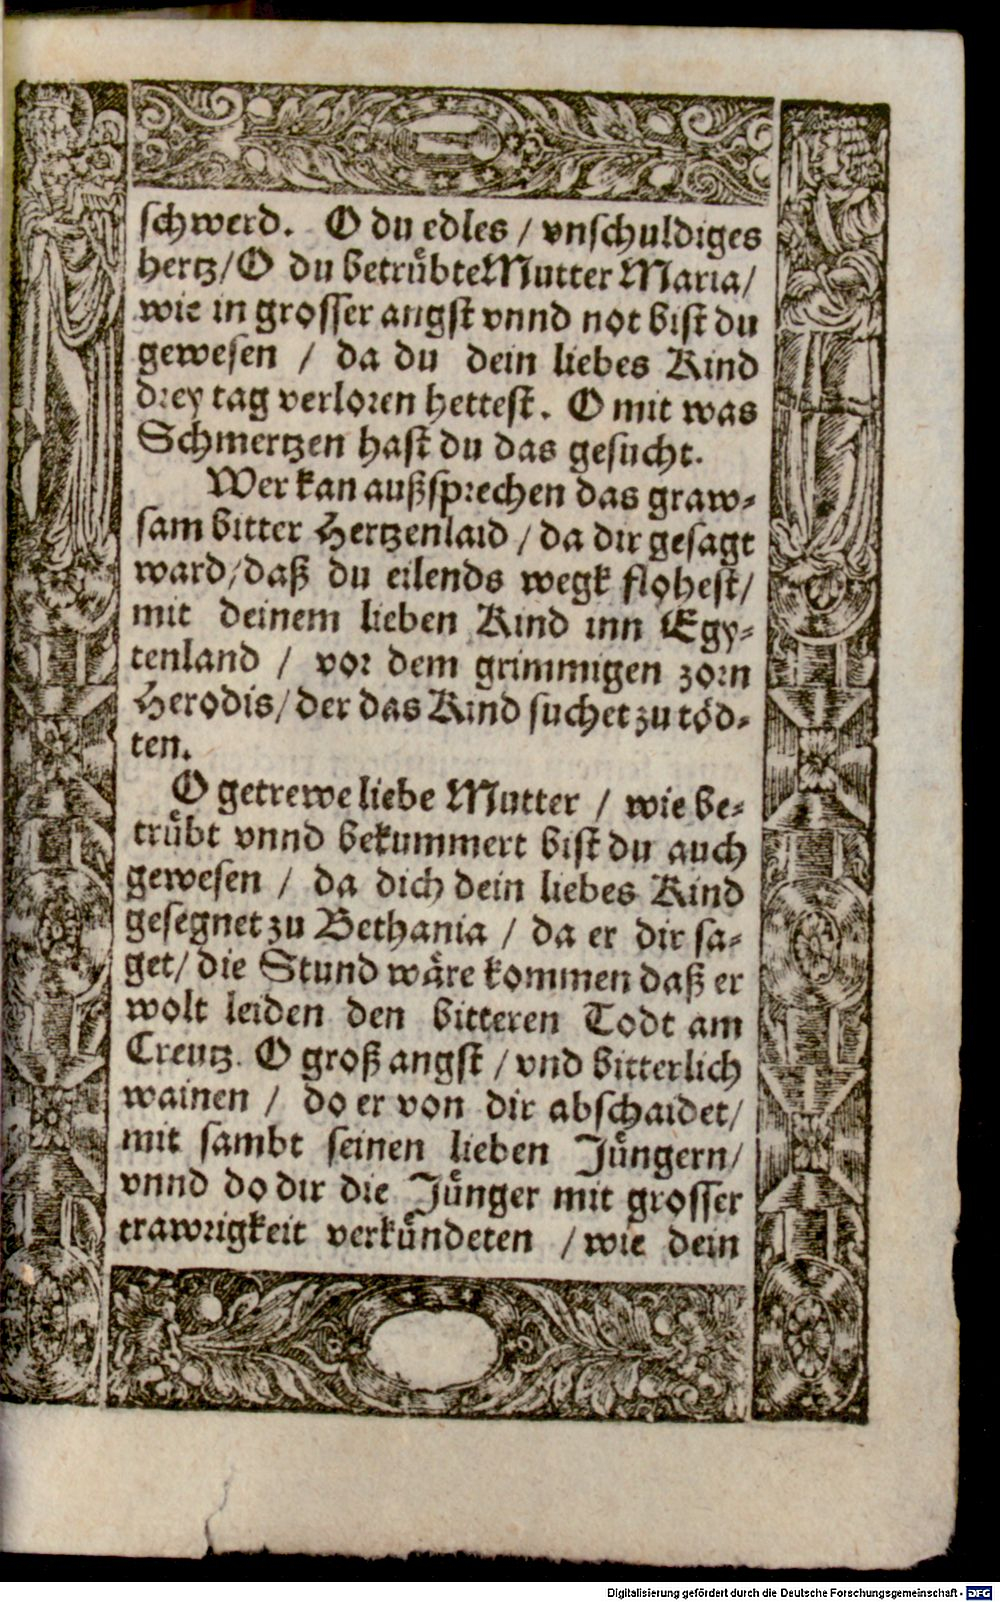 schwerd. O du edles / vnschuldiges
hertz/ O du betrübte Mutter Maria/
wie in grosser angst vnnd not bist du
gewesen / da du dein liebes Kind
drey tag verloren hettest. O mit was
Schmertzen hast du das gesucht.
Wer kan außsprechen das graw-
sam bitter Hertzenlaid / da dir gesagt
ward/ daß du eilends wegk flohest/
mit deinem lieben Kind inn Egy-
tenland / vor dem grimmigen zorn
Herodis/ der das Kind suchet zu töd-
ten.
O getrewe liebe Mutter / wie be-
trübt vnnd bekummert bist du auch
gewesen / da dich dein liebes Kind
gesegnet zu Bethania / da er dir sa-
get/ die Stund wäre kommen daß er
wolt leiden den bitteren Todt am
Creutz. O groß angst / vnd bitterlich
wainen / do er von dir abschaidet/
mit sambt seinen lieben Jüngern/
vnnd do dir die Jünger mit grosser
trawrigkeit verkündeten / wie dein
Digitalisierung gefördert durch die Deutsche Forschungsgemeinschaft - DFG